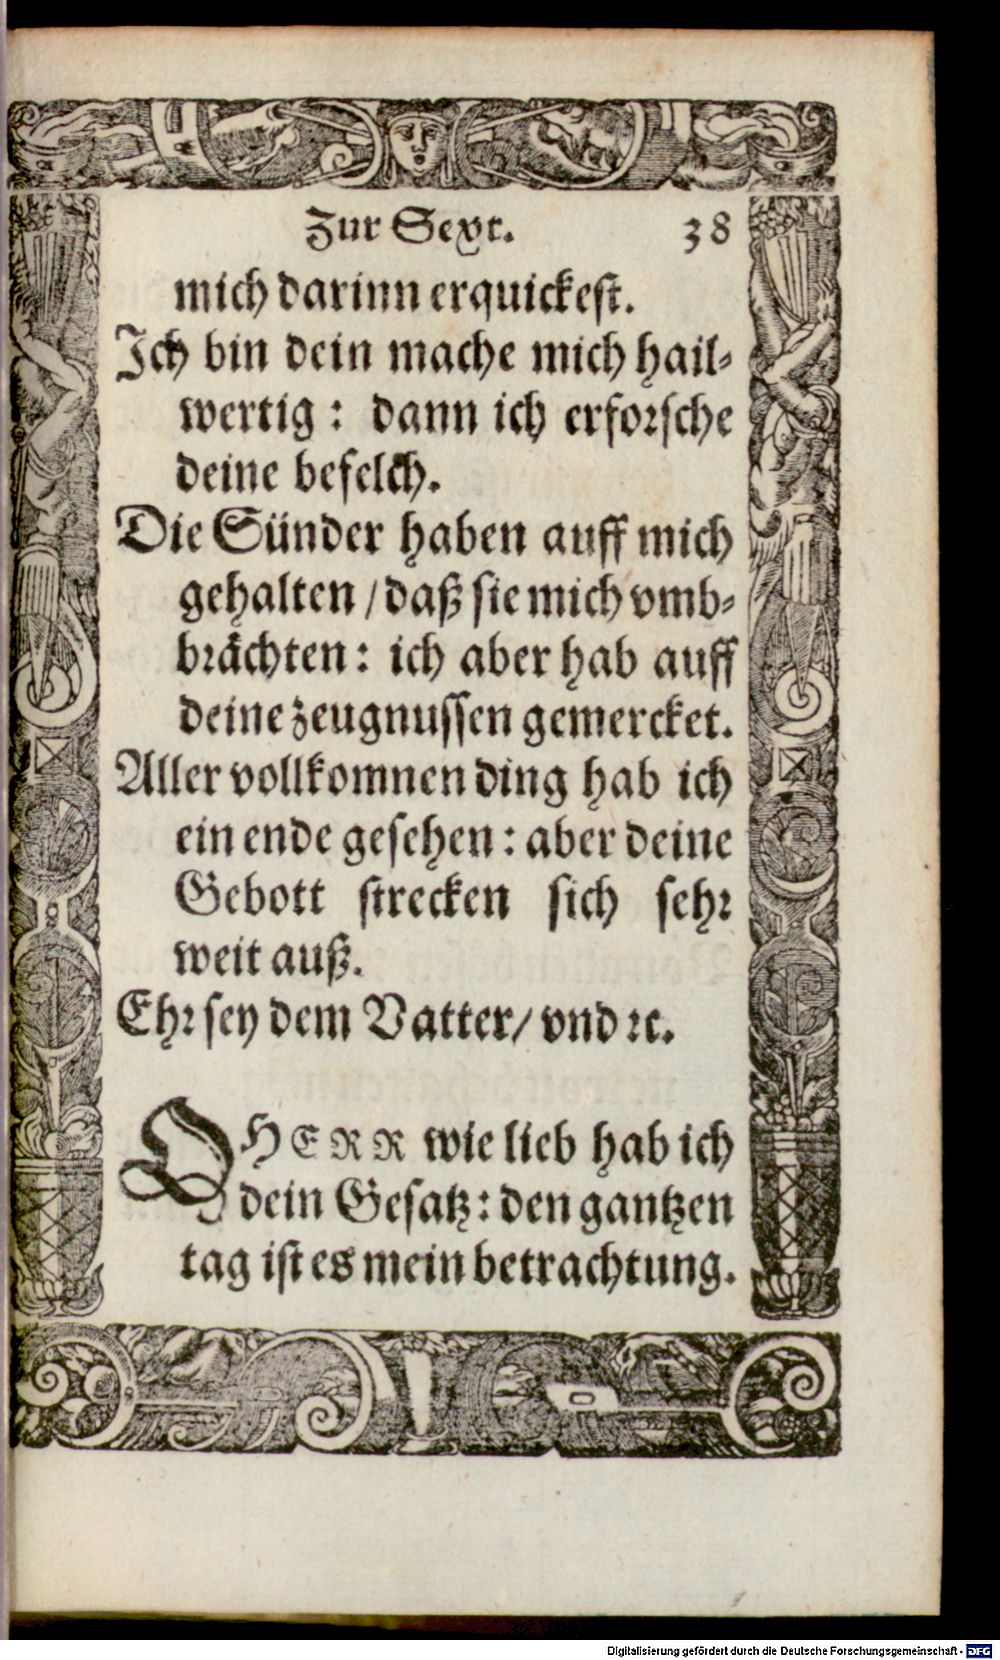 Zur Sext. 38
mich darinn erquickest.
Ich bin dein mache mich hail-
wertig: dann ich erforsche
deine befelch.
Die Sünder haben auff mich
gehalten / daß sie mich vmb-
brächten: ich aber hab auff
deine zeugnussen gemercket.
Aller vollkomnen ding hab ich
ein ende gesehen: aber deine
Gebott strecken sich sehr
weit auß.
Ehr sey dem Vatter/ vnd ꝛc.
O HERR wie lieb hab ich
dein Gesatz: den gantzen
tag ist es mein betrachtung.
Digitalisierung gefördert durch die Deutsche Forschungsgemeinschaft - DFG